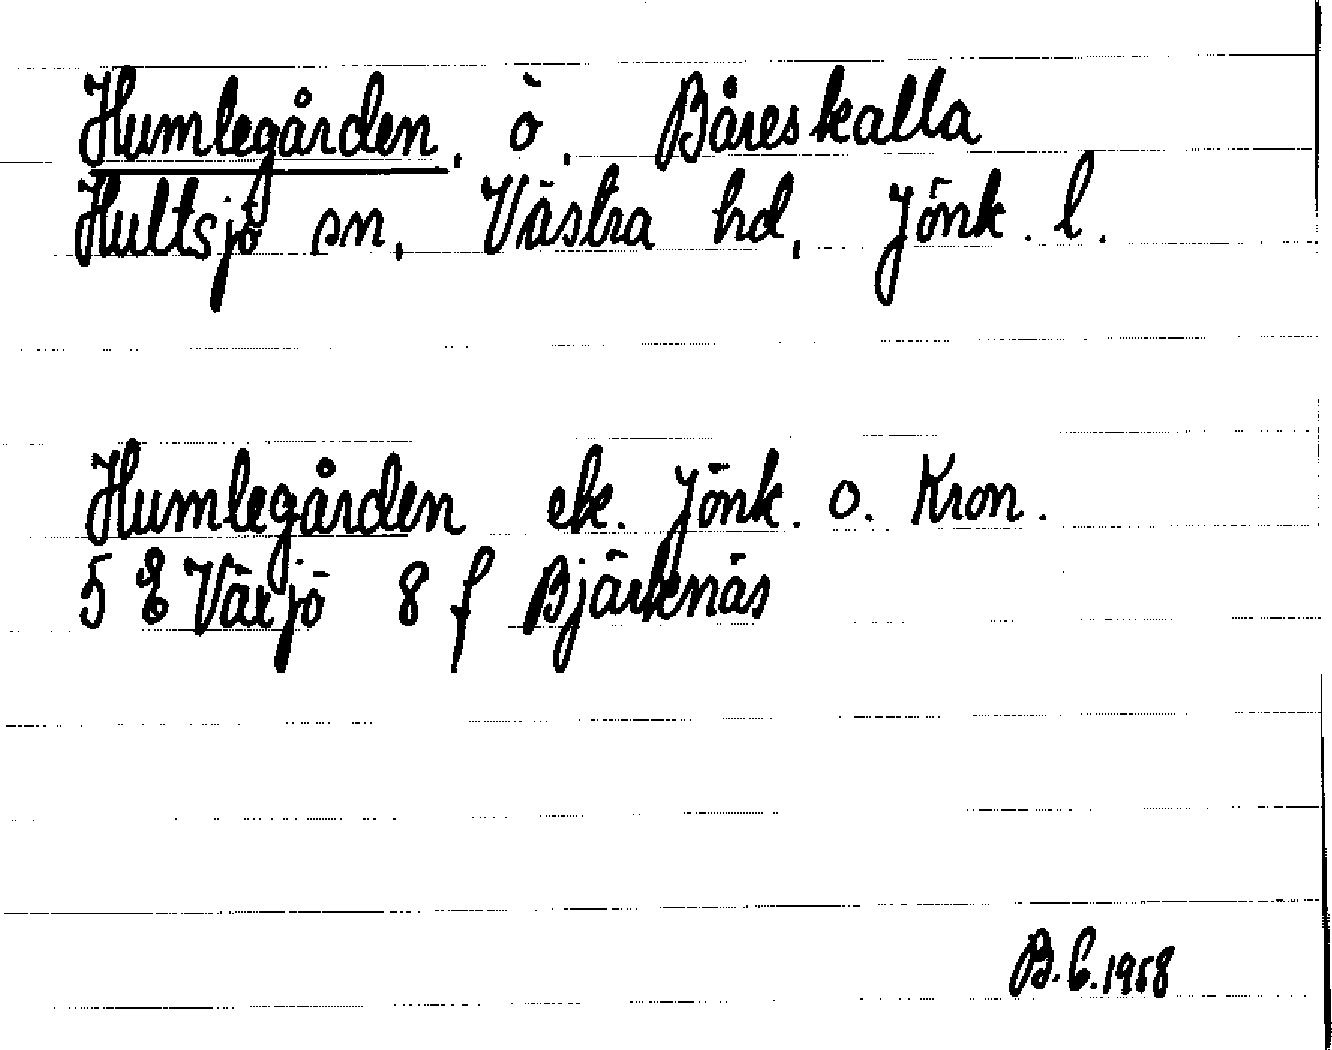 Humlegården, ö, Båreskalla
Hultsjö sn, Västra hd, Jönk. l.
Humlegården ek. Jönk. o. Kron.
5 E Växjö 8 f Bjärknäs
B.E.1958